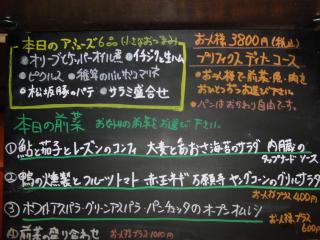 本日のアミューズ6品(小さなおつまみ)
●オリーブとケッパーオイル煮 ●イチジクと生ハム
●ピクルス ●稚茸のバルサミコマリネ
●松坂豚のパテ ●サラミ盛合せ
お一人様3800円(税込)
プリフィックスディナーコース
●お一人様で前菜・魚・肉を
おひとつずつお選び下さい。
●パンはおかわり自由です。
本日の前菜 お好みの前菜をお選び下さい。
①鮎と茄子とレーズンのコンフィ 大麦とあおさ海苔のサラダ 内臓の
タップナードソース
②鴨の燻製とフルーツトマト 赤玉ネギ 万願寺 ヤングコーンのグリルサラダ
お一人様プラス400円
③ホワイトアスパラ・グリーンアスパラ・パンチェッタのオープンオムレツ
お一人様プラス
600円
④前菜の盛り合わせ お一人様プラス1000円